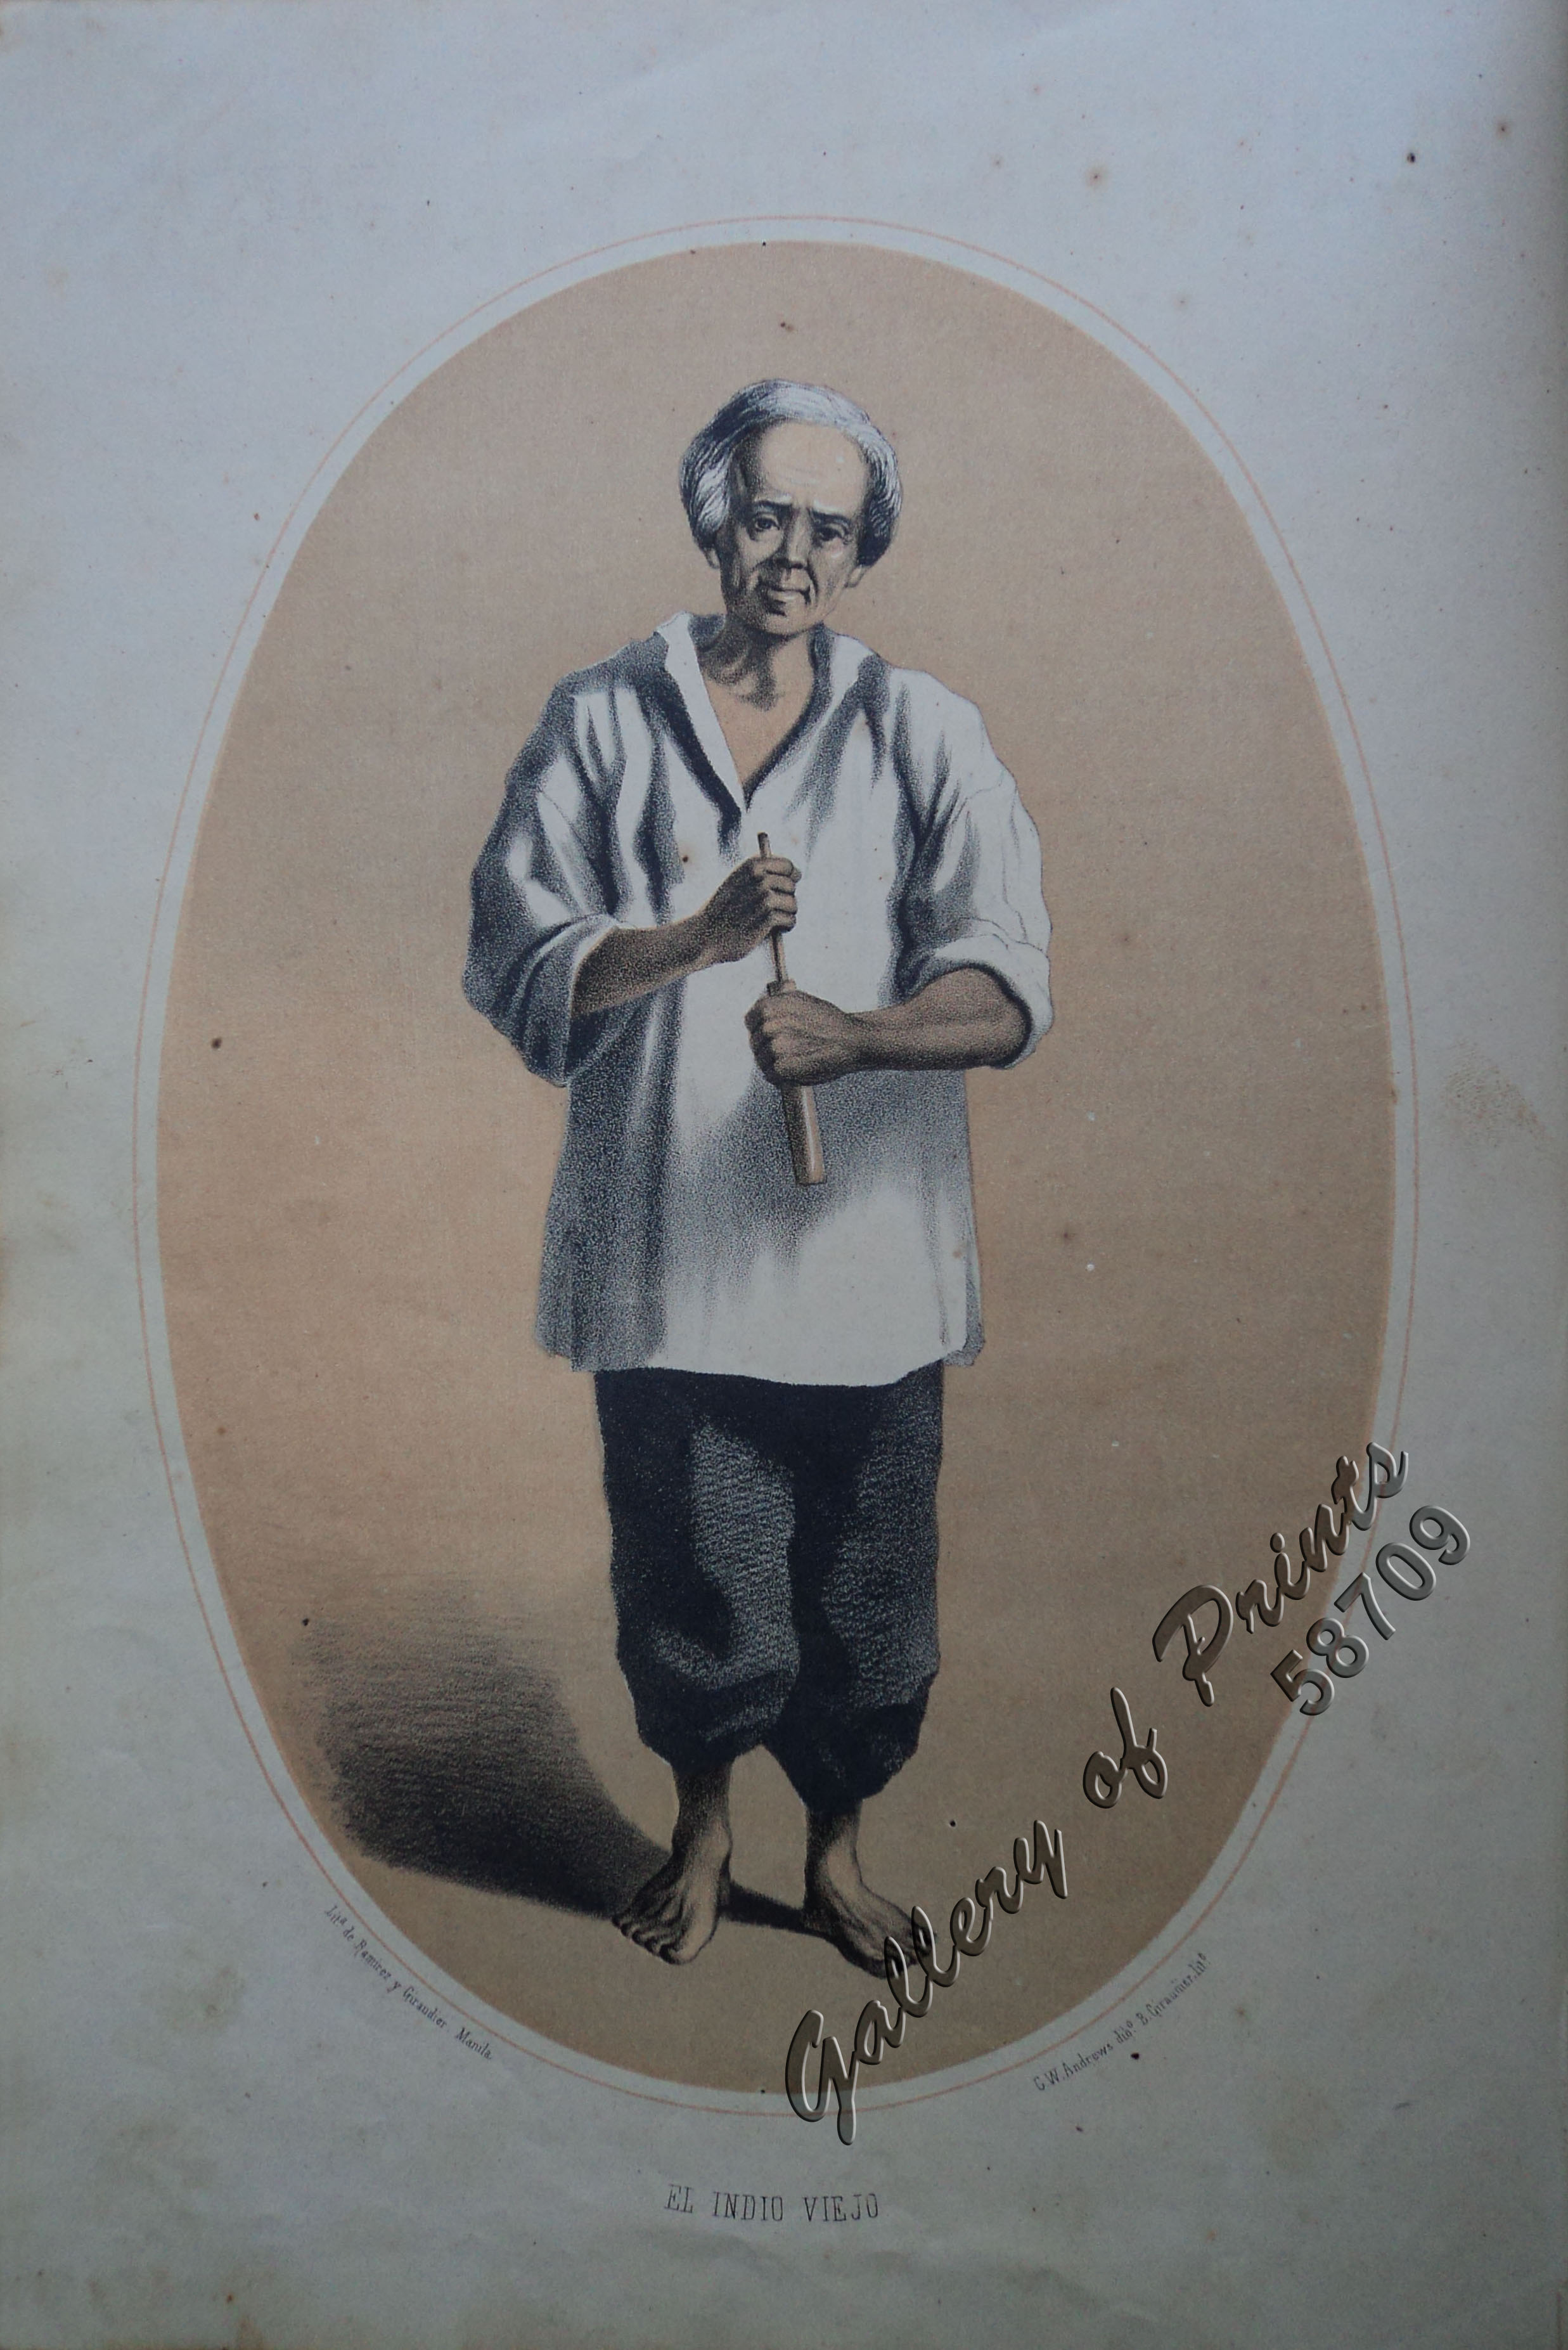 Litª de Ramirez y Giraudier. Manila.
C.W. Andrews dibº B. Giraudier, litº
EL INDIO VIEJO
Gallery of Prints
58709